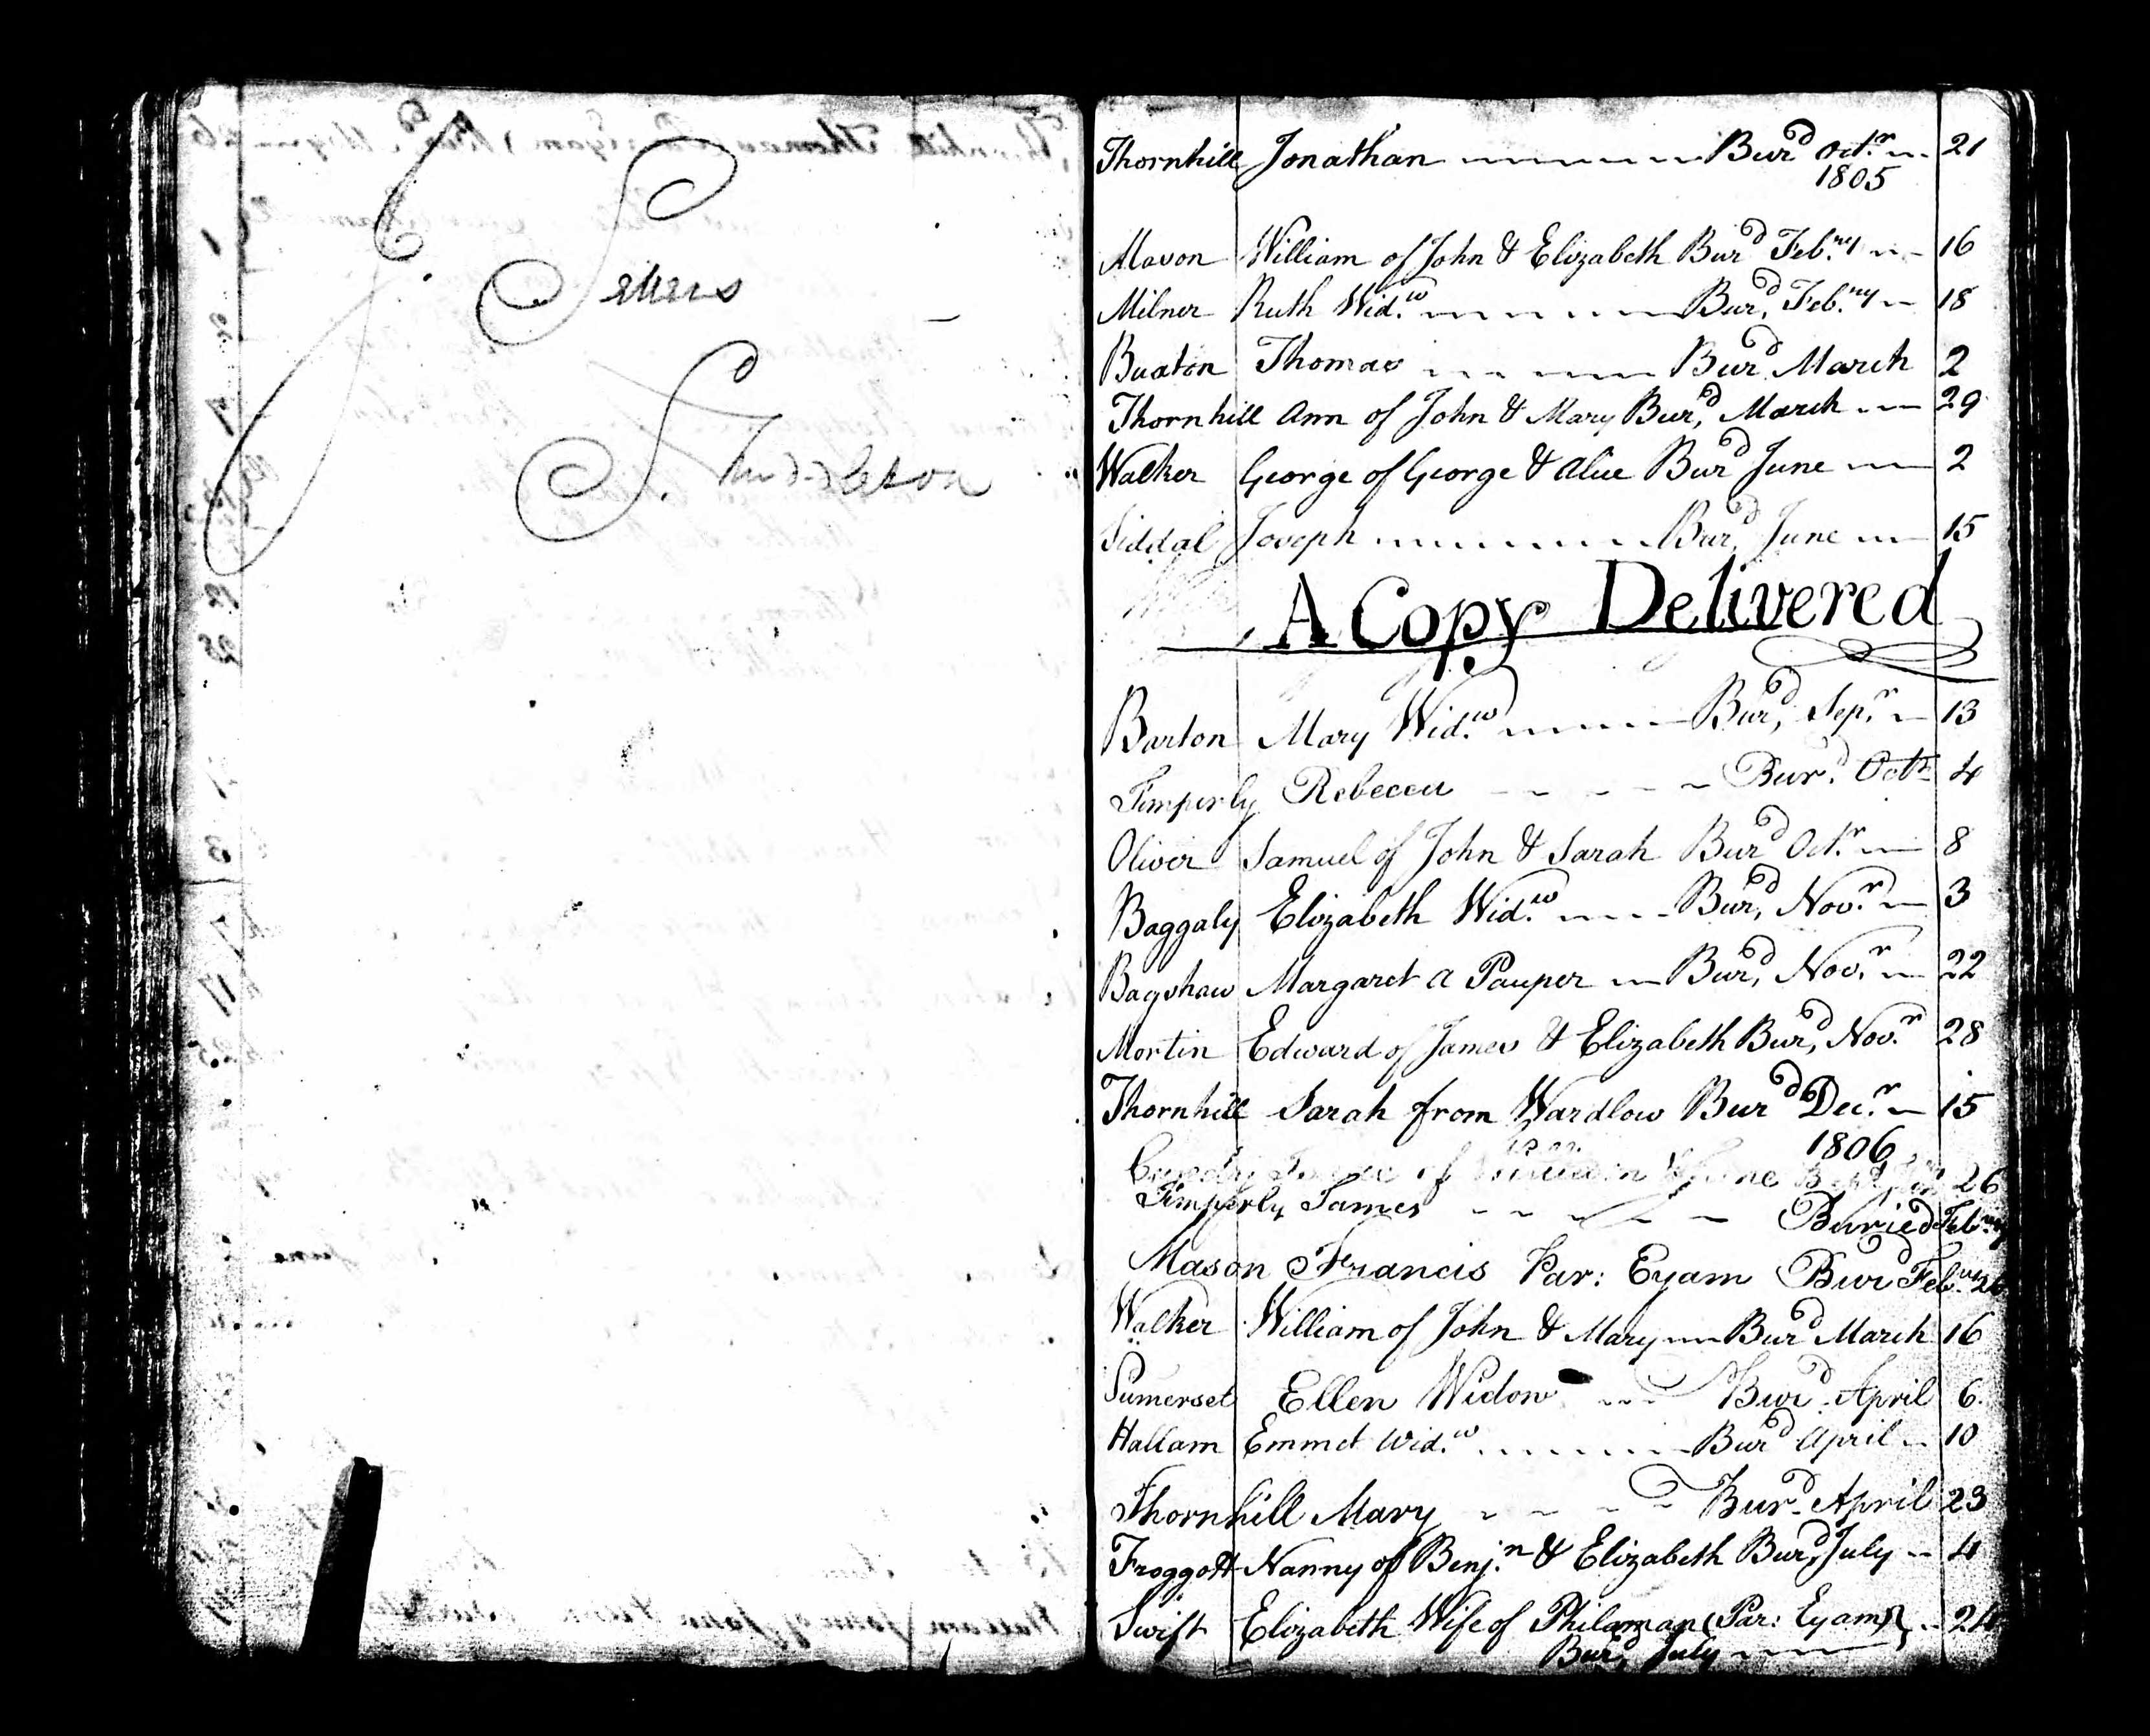 J
Thornhill Jonathan Burd Octr 21
1805
Mason William of John & Elizabeth Burd Febry 16
Milner Ruth Widw Burd Febry 18
Buxton Thomas Burd March 2
Thornhill Ann of John & Mary Burd March 29
Walker George of George & Alice Burd June 2
Siddal Joseph Burd June 15
A Copy Delivered
Barton Mary Widw Burd Sepr 13
Timperly Rebecca Burd Octr 4
Oliver Samuel of John & Sarah Burd Octr 8
Baggaly Elizabeth Widw Burd Novr 3
Bagshaw Margaret a Pauper Burd Novr 22
Mortin Edward of James & Elizabeth Burd Novr 28
Thornhill Sarah from Wardlow Burd Decr 15
1806
of & 26
Timperly James Buried Febry
Mason Francis Par: Eyam Burd Febry 26
Walker William of John & Mary Burd March 16
Sumerset Ellen Widow Burd April 6
Hallam Emmet Widw Burd April 10
Thornhill Mary Burd April 23
Froggott Nanny of Benjn & Elizabeth Burd July 4
Swift Elizabeth Wife of Philaman (Par: Eyam) 24
Burd July